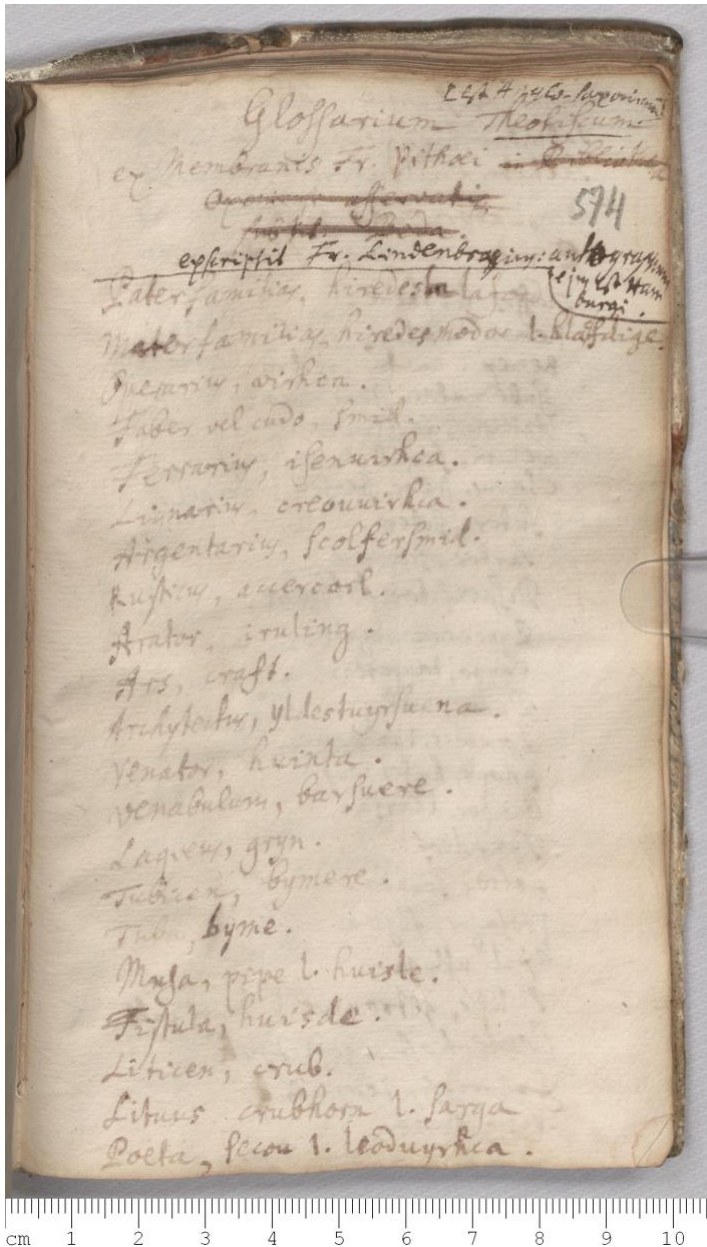 Est Anglo-Saxonicum
Glossarium Theotiscum
ex Membranis Fr. Pithoei in Bibliotheca
asservatis
574
exscripsit Fr. Lindenbrogius: autographum
ejus est Ham
burgi.
Paterfamilias, hiredes
Materfamilias, hiredesmodor l. hlafdige.
Operarius, wirhca.
Faber vel cudo, smid.
Ferrarius, isenuuirhca.
Lignarius, treouuirhca.
Argentarius, seolfersmid.
Rusticus, accerceorl.
Arator, iruling.
Ars, craft.
Archytectus, yldestuyrhuena.
Venator, huinta.
Venabulum, barsuere.
Laqueus, gryn.
Tubicen, bymere.
Tuba, byme.
Musa, pipe l. huisle.
Fistula, huisde.
Liticen, crub.
Lituus crubhorn l. sarga
Poeta, secou l. leoduyrhca.